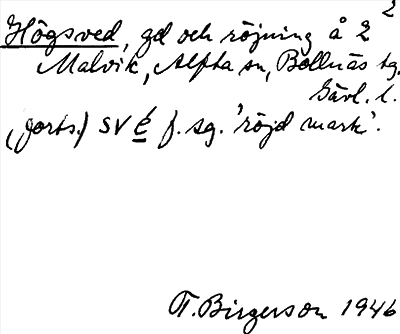 2
Högsved, gd och röjning å 2
Malvik, Alfta sn, Bollnäs tg.
Gävl. l.
(forts.) SVÉ f. sg. 'röjd mark'.
T. Birgerson 1946